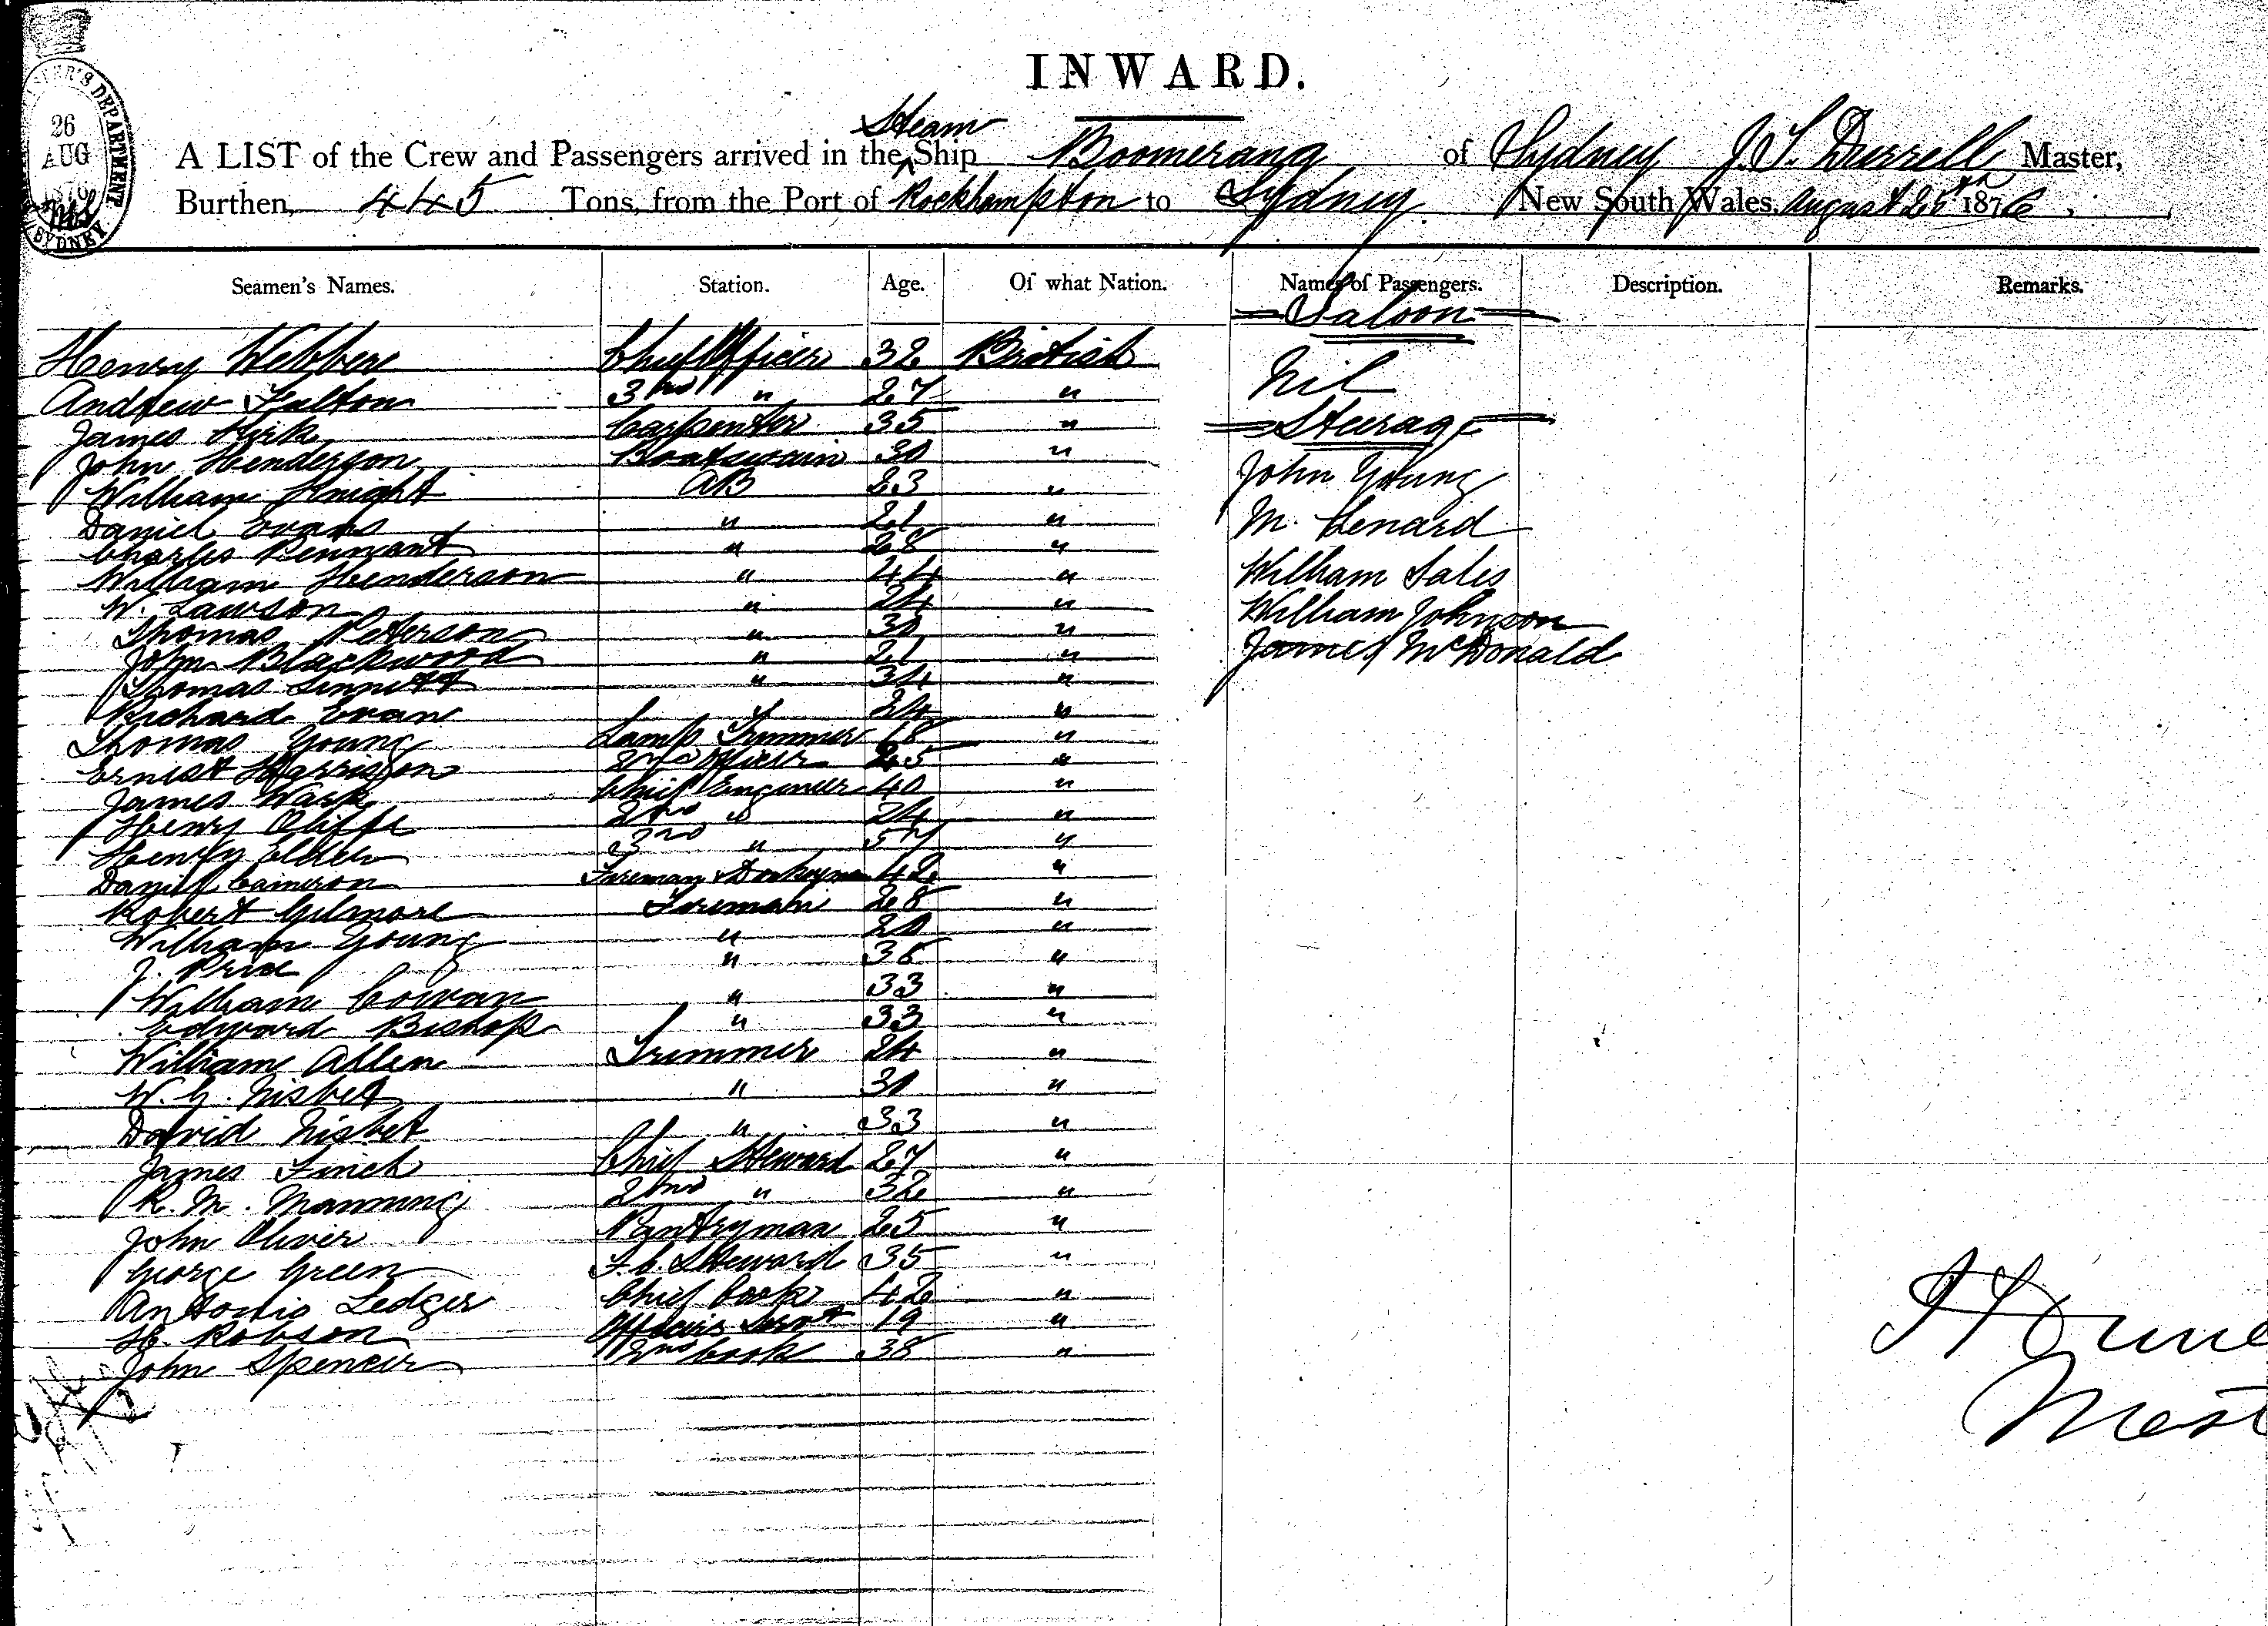 INWARD.
26
AUG
1876
SYDNEY
A LIST of the Crew and Passengers arrived in the Steam Ship Boomerang of Sydney J. S. Durrell Master,
Burthen, 445 Tons, from the Port of Rockhampton to Sydney New South Wales, August 25th 1876.
Seamen's Names. Station. Age. Of what Nation. Names of Passengers. Description. Remarks.
Saloon
Henry Webber Chief Officer 32 British Nil
Andrew Fulton 3rd " 27 "
James Kirk Carpenter 35 " Steerage
John Henderson Boatswain 30 "
William Knight AB 23 " John Young
Daniel Evans " 21 " M. Lenard
Charles Pennant " 28 "
William Henderson " 44 " William Sales
W. Lawson " 24 " William Johnson
Thomas Peterson " 30 "
John Blackwood " 21 " James McDonald
Thomas Sinnett " 34 "
Richard Evan " 24 "
Thomas Young Lamp Trimmer 18 "
Ernest Harrison 2nd Officer 25 "
James Wark Chief Engineer 40 "
Henry Cliffe 2nd " 24 "
Henry Elder 3rd " 57 "
Daniel Cameron Fireman & Donkeyman 42 "
Robert Gilmore Fireman 28 "
William Young " 20 "
J. Price " 36 "
William Cowan " 33 "
Edward Bishop " 33 "
William Allen Trimmer 24 "
W. G. Nisbet " 30 "
David Nisbet " 33 "
James Finch Chief Steward 27 "
R. M. Manning 2nd " 32 "
John Oliver Pantryman 25 "
George Green F. C. Steward 35 "
Antonio Ledger Chief Cook 42 "
H. Robson Officers Servt 19 "
John Spencer 2nd Cook 38 "